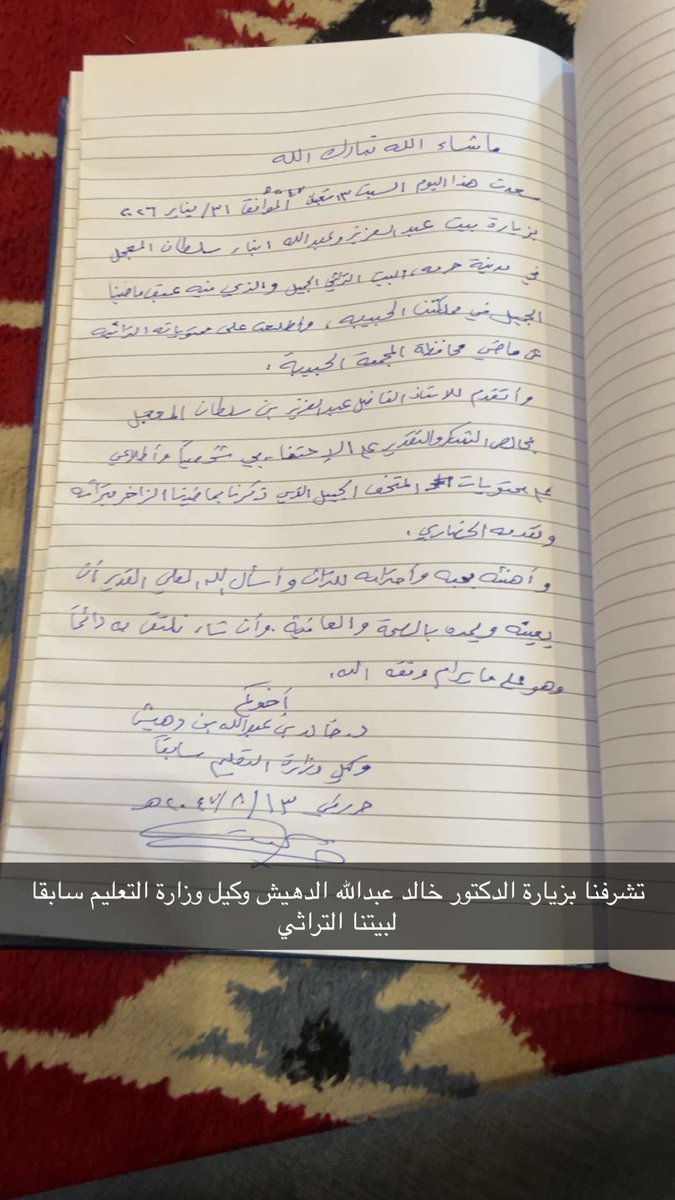 ماشاء الله تبارك الله
سعدت هذا اليوم السبت ١٣ شعبان الموافق ٣١/يناير ٢٠٢٦
بزيارة بيت عبدالعزيز وعبدالله ابناء سلطان المعجل
في مدينة حرمه، البيت التراثي الجميل والذي فيه عبق ماضينا
الجميل في مملكتنا الحبيبه، واطلعت على محتوياته التراثيه
عن ماضي محافظة المجمعة الحبيبة.
وأتقدم للاستاذ الفاضل عبدالعزيز بن سلطان المعجل
بخالص الشكر والتقدير على الإحتفاء بي شخصياً وأطلاعي
على محتويات المتحف الجميل الذي ذكرنا بماضينا الزاخر بتراثه
وتقدمه الحضاري.
و أهنئه بحبه وأحترامه للتراث وأسأل الله العلي القدير أن
يعينه ويمده بالصحة والعافية. وأن شاء نلتقي به دائماً
وهو على مايرام وفقه الله.
أخوكم
د. خالد بن عبدالله بن دهيش
وكيل وزارة التعليم سابقاً
حرر في ١٣/٨/٢٠٤٧هـ
تشرفنا بزيارة الدكتور خالد عبدالله الدهيش وكيل وزارة التعليم سابقا
لبيتنا التراثي